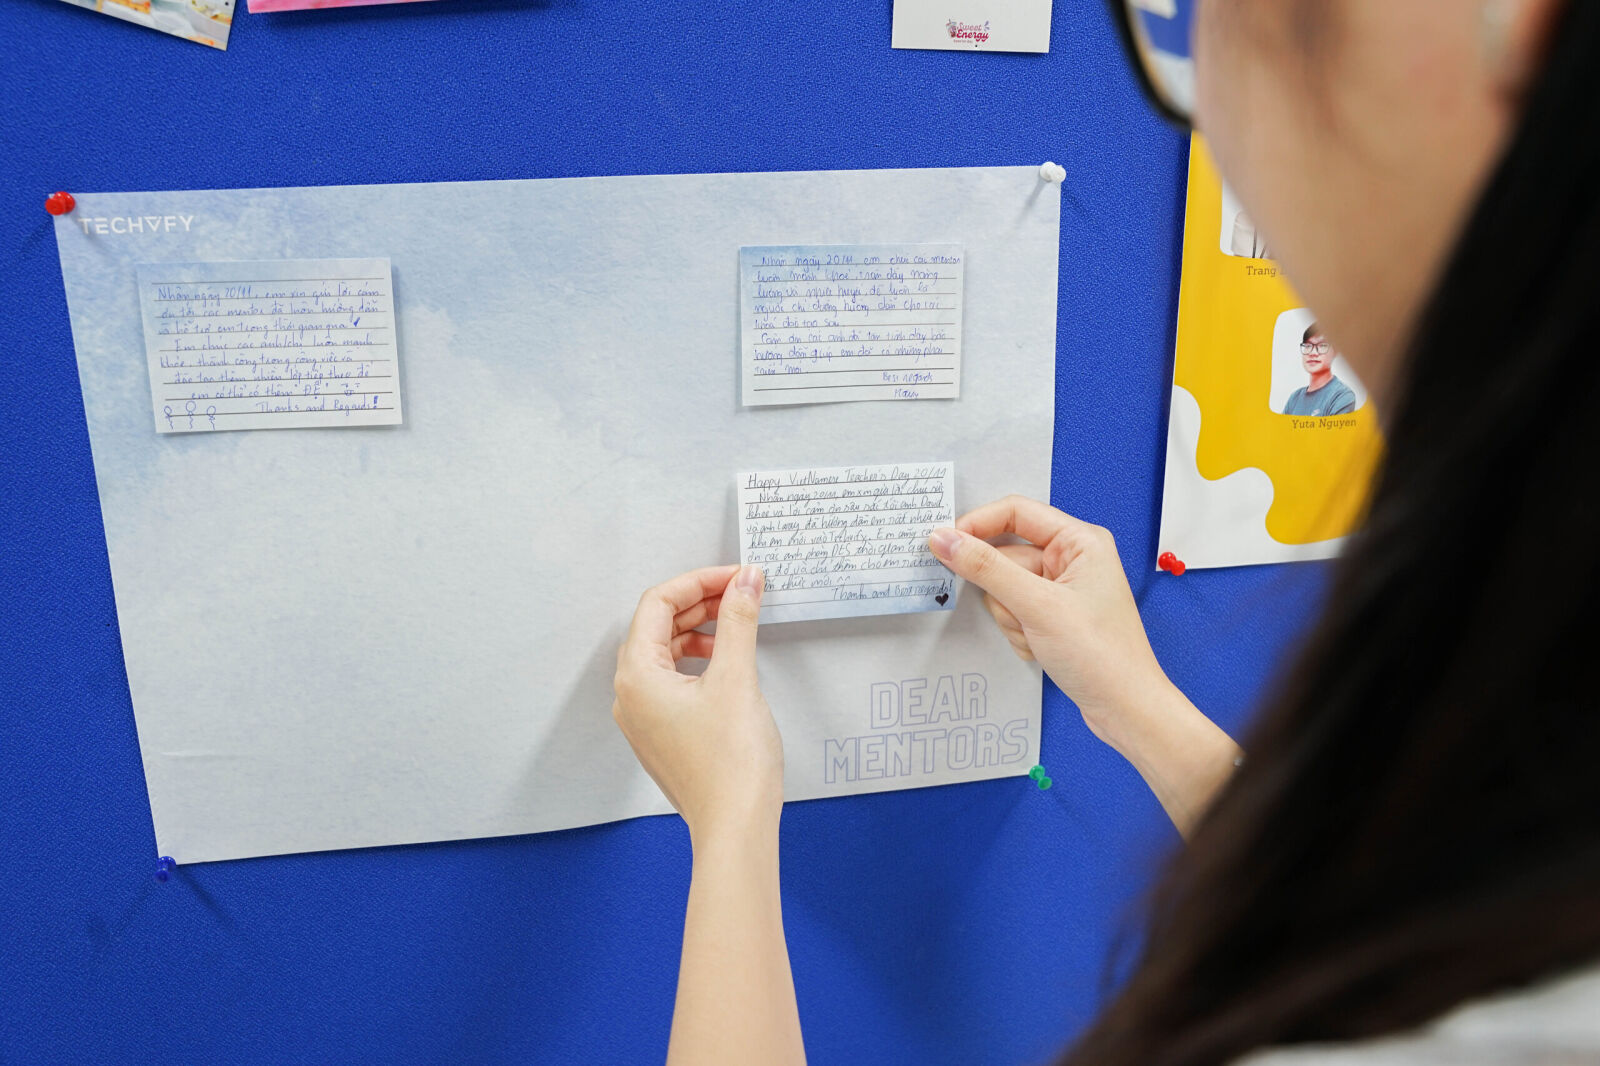 Sweet
Energy
TECHVFY
Nhân ngày 20/11, em xin gửi lời cảm
ơn tới các mentor đã luôn hướng dẫn
và hỗ trợ em trong thời gian qua.
Em chúc các anh/chị luôn mạnh
khỏe, thành công trong công việc và
đào tạo thêm nhiều lớp tiếp theo để
em có thể có thêm "ĐỆ"
Thanks and Regards!
Nhân ngày 20/11, em chúc các mentor
luôn mạnh khoẻ, tràn đầy năng
lượng và nhiệt huyết để luôn là
người chỉ đường hướng dẫn cho các
khoá đào tạo sau.
Cảm ơn các anh đã tận tình dạy bảo
hướng dẫn giúp em để có những phát
triển mới.
Best regards
Happy VietNamese Teacher's Day 20/11
Nhân ngày 20/11, em xin gửi lời chúc sức
khoẻ và lời cảm ơn sâu sắc tới anh
và anh đã hướng dẫn em rất nhiệt tình
khi em mới vào Techvify. Em cũng
ơn các anh phòng thời gian qua
đỡ và chỉ thêm cho em rất
thức mới ^^
Thanks and Best regards!
DEAR
MENTORS
Trang
Yuta Nguyen